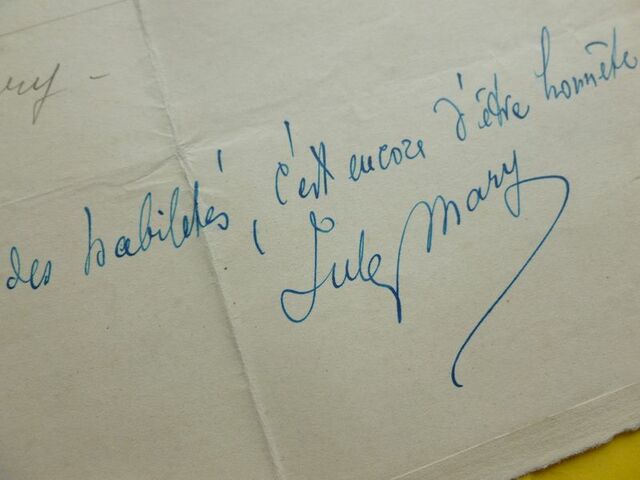 des habiletés, c'est encore d'être honnête
Jules Mary